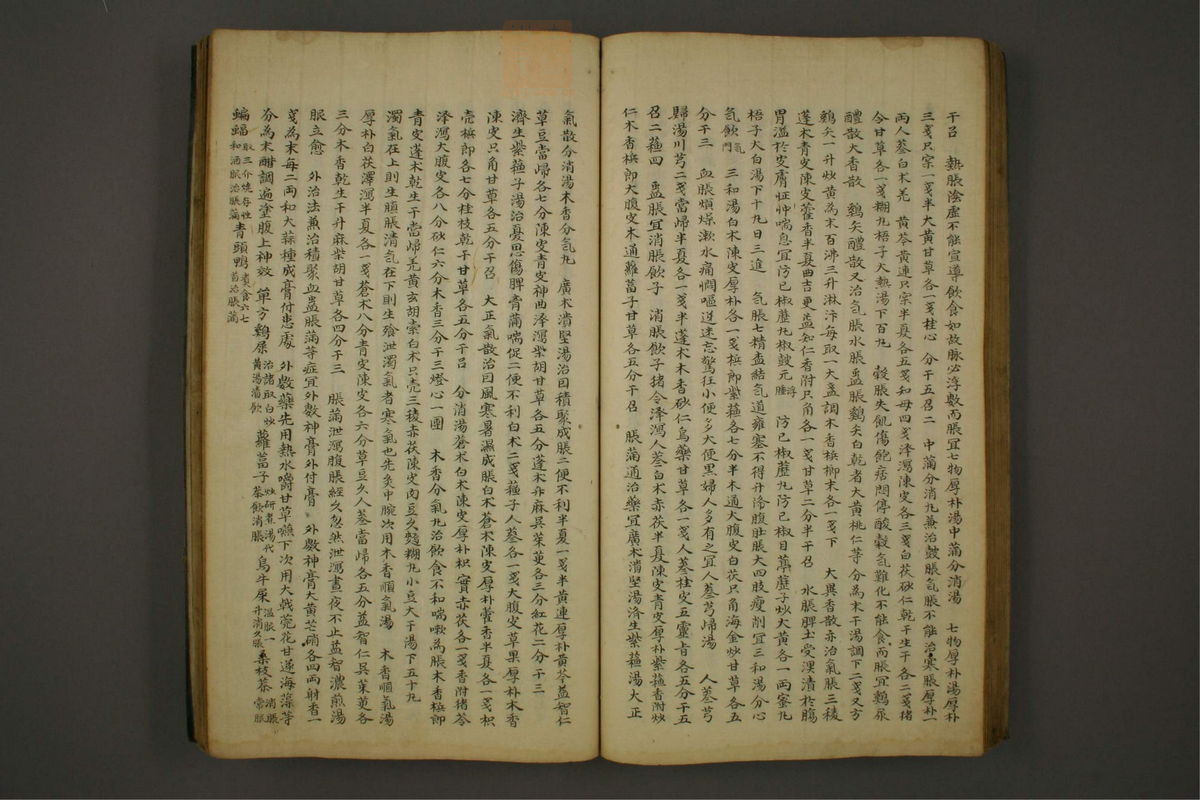 干召 熱脹陰虛不能宣導飮食如故脉必浮數而脹宜七物厚朴湯中滿分消湯 七物厚朴湯厚朴
三戔只宗一戔半大黃甘草各一戔桂心 分干五召二 中滿分消丸兼治皷脹氣脹不能治寒脹厚朴一
兩人蔘白朮羌 黃芩黃連只宗半夏各五戔知母四戔泽瀉陳皮各三戔白茯砂仁乾干生干各二戔猪
令甘草各一戔糊丸梧子大熱湯下百丸 糓脹失飢傷飽痞悶停酸糓气難化不能食而脹宜鷄屎
醴散大香散 鷄矢醴散又治气脹水脹蠱脹鷄矢白乾者大黃桃仁等分為末干湯調下二戔又方
鷄矢一升炒黃為末百沸三升淋汁每取一大盞調木香梹榔末各一戔下 大異香散亦治氣脹三稜
蓬朮青皮陳皮藿香半夏曲吉更益知仁香附只角各一戔甘草二分半干召 水脹脾土受湿漬於膓
胃溢於皮膚怔忡喘息宜防已椒藶丸椒皷元浮腫 防已椒藶丸防已椒目葶藶子炒大黃各一兩蜜丸
梧子大白湯下十丸日三進 气脹七精盍結气道雍塞不得升降腹肚脹大四肢瘦削宜三和湯分心
气飮气門 三和湯白朮陳皮厚朴各一戔梹郞紫蘓各七分半木通大腹皮白茯只角海金炒甘草各五
分干三 血脹煩燥漱水痛悶嘔逆迷忘驚狂小便多大便黑婦人多有之宜人蔘芎歸湯 人蔘芎
歸湯川芎二戔當歸半夏各一戔半蓬朮木香砂仁烏藥甘草各一戔人蔘桂皮五靈旨各五分干五
召二蘓四 蠱脹宜消脹飮子 消脹飮子猪令泽瀉人蔘白朮赤茯半夏陳皮青皮厚朴紫蘓香附炒
仁木香梹郞大腹皮木通蘿葍子甘草各五分干召 脹滿通治藥宜廣朮潰堅湯濟生紫蘓湯大正
氣散分消湯木香分气丸 廣朮潰堅湯治因積聚成脹二便不利半夏一戔半黃連厚朴黃芩益智仁
草豆當歸各七分陳皮青皮神曲泽瀉柴胡甘草各五分蓬朮升麻吳茱萸各三分紅花二分干三
濟生紫蘓子湯治憂思傷脾青滿喘促二便不利白朮二戔蘓子人蔘各一戔大腹皮草果厚朴木香
陳皮只角甘草各五分干召 大正氣散治因風寒暑濕成脹白朮蒼朮陳皮厚朴藿香半夏各一戔枳
壱梹郞各七分桂枝乾干甘草各五分干召 分消湯蒼朮白朮陳皮厚朴枳實赤茯各一戔香附猪苓
泽瀉大腹皮各八分砂仁六分木香三分干三燈心一團 木香分氣丸治飮食不和喘嗽為脹木香梹郞
青皮蓬朮乾生干當歸羌黃玄胡索白朮只壳三稜赤茯陳皮肉豆久麪糊丸小豆大干湯下五十丸
濁氣在上則生䐜脹清气在下則生飱泄濁氣者寒气也先灸中脘次用木香順氣湯 木香順气湯
厚朴白茯澤瀉半夏各一戔蒼朮八分青皮陳皮各六分草豆久人蔘當歸各五分益智仁吳茱萸各
三分木香乾生干升麻柴胡甘草各四分干三 脹滿泄瀉腹脹經久忽然泄瀉晝夜不止益智濃煎湯
服立愈 外治法兼治積聚血蠱脹滿等症宜外敷神膏外付膏 外敷神膏大黃芒硝各四兩射香一
戔為末每二兩和大蒜種成膏付患處 外敷藥先用熱水嚼甘草嚥下次用大戟芫花甘遂海藻等
分為末酣調遍塗腹上神效 單方鷄屎治諸取白炒黃湯漬飮 蘿葍子炒研煮湯代茶飮消脹 烏牛尿溫服一升消久脹 桑枝茶消脹常服
蝙蝠取三介燒存性和酒服治脹滿 青頭鴨煮食六七首治脹滿